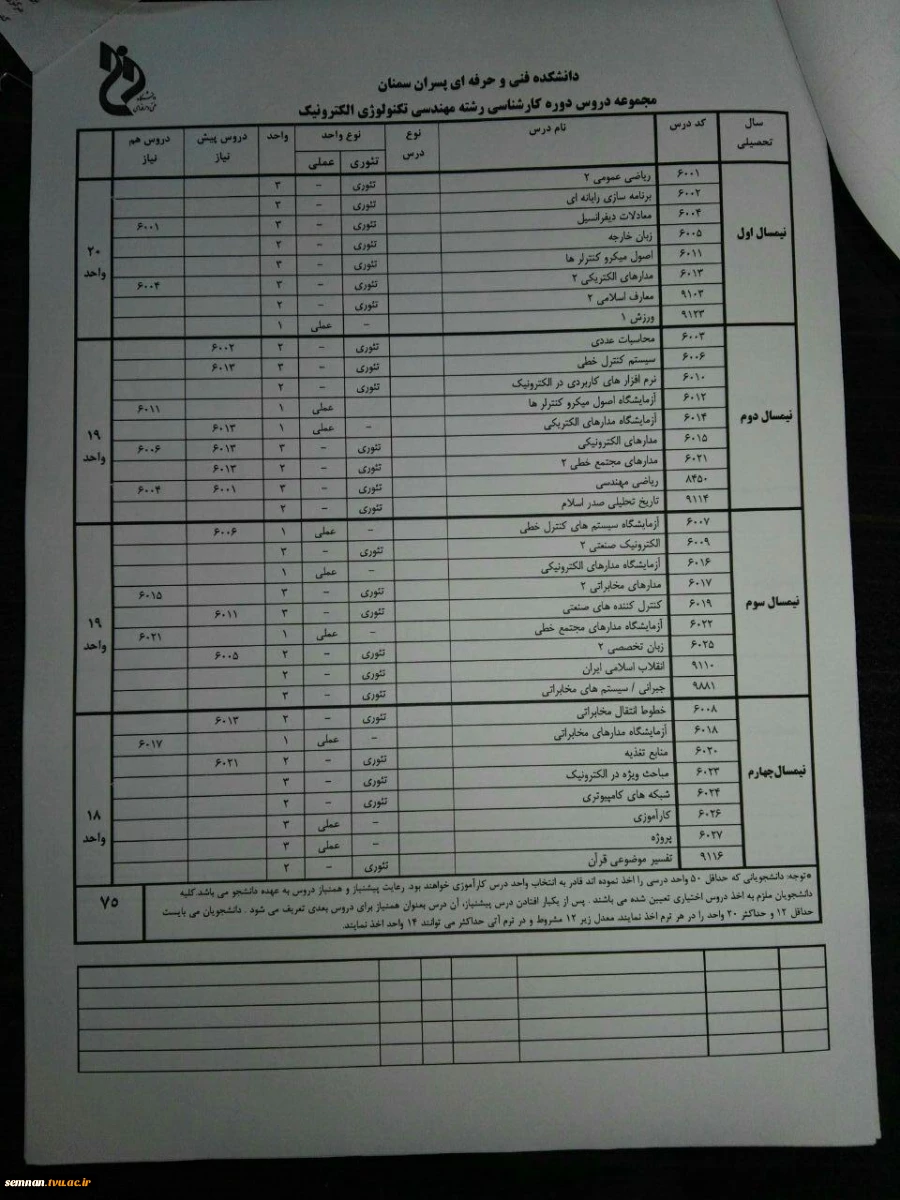 دانشگاه
فنی و حرفه‌ای
دانشکده فنی و حرفه ای پسران سمنان
مجموعه دروس دوره کارشناسی رشته مهندسی تکنولوژی الکترونیک
سال تحصیلی کد درس نام درس نوع درس نوع واحد واحد دروس پیش نیاز دروس هم نیاز
تئوری عملی
نیمسال اول
۶۰۰۱ ریاضی عمومی ۲ تئوری - ۳
۶۰۰۲ برنامه سازی رایانه ای تئوری - ۳
۶۰۰۴ معادلات دیفرانسیل تئوری - ۳ ۶۰۰۱
۶۰۰۵ زبان خارجه تئوری - ۲
۶۰۱۱ اصول میکرو کنترلر ها تئوری - ۳
۶۰۱۳ مدارهای الکتریکی ۲ تئوری - ۳ ۶۰۰۴
۹۱۰۳ معارف اسلامی ۲ تئوری - ۲
۹۱۲۳ ورزش ۱ - عملی ۱
۲۰ واحد
نیمسال دوم
۶۰۰۳ محاسبات عددی تئوری - ۲ ۶۰۰۲
۶۰۰۶ سیستم کنترل خطی تئوری - ۳ ۶۰۱۳
۶۰۱۰ نرم افزار های کاربردی در الکترونیک تئوری - ۲
۶۰۱۲ آزمایشگاه اصول میکرو کنترلر ها عملی ۱ ۶۰۱۱
۶۰۱۴ آزمایشگاه مدارهای الکتریکی - عملی ۱ ۶۰۱۳
۶۰۱۵ مدارهای الکترونیکی تئوری - ۳ ۶۰۱۳ ۶۰۰۶
۶۰۲۱ مدارهای مجتمع خطی ۲ تئوری - ۲ ۶۰۱۳
۸۴۵۰ ریاضی مهندسی تئوری - ۳ ۶۰۰۱ ۶۰۰۴
۹۱۱۴ تاریخ تحلیلی صدر اسلام تئوری - ۲
۱۹ واحد
نیمسال سوم
۶۰۰۷ آزمایشگاه سیستم های کنترل خطی - عملی ۱ ۶۰۰۶
۶۰۰۹ الکترونیک صنعتی ۲ تئوری - ۳
۶۰۱۶ آزمایشگاه مدارهای الکترونیکی - عملی ۱
۶۰۱۷ مدارهای مخابراتی ۲ تئوری - ۳ ۶۰۱۵
۶۰۱۹ کنترل کننده های صنعتی تئوری - ۳ ۶۰۱۱
۶۰۲۲ آزمایشگاه مدارهای مجتمع خطی - عملی ۱ ۶۰۲۱
۶۰۲۵ زبان تخصصی ۲ تئوری - ۲ ۶۰۰۵
۹۱۱۰ انقلاب اسلامی ایران تئوری - ۲
۹۸۸۱ جبرانی / سیستم های مخابراتی تئوری - ۳
۱۹ واحد
نیمسال چهارم
۶۰۰۸ خطوط انتقال مخابراتی تئوری - ۲ ۶۰۱۳
۶۰۱۸ آزمایشگاه مدارهای مخابراتی - عملی ۱ ۶۰۱۷
۶۰۲۰ منابع تغذیه تئوری - ۲ ۶۰۲۱
۶۰۲۳ مباحث ویژه در الکترونیک تئوری - ۳
۶۰۲۴ شبکه های کامپیوتری تئوری - ۲
۶۰۲۶ کارآموزی - عملی ۳
۶۰۲۷ پروژه - عملی ۳
۹۱۱۶ تفسیر موضوعی قرآن تئوری - ۲
۱۸ واحد
*توجه: دانشجویانی که حداقل ۵۰ واحد درسی را اخذ نموده اند قادر به انتخاب واحد درس کارآموزی خواهند بود. رعایت پیشنیاز و همنیاز دروس به عهده دانشجو می باشد. کلیه
دانشجویان ملزم به اخذ دروس اختیاری تعیین شده می باشند. پس از یکبار افتادن درس پیشنیاز، آن درس بعنوان همنیاز برای دروس بعدی تعریف می شود. دانشجویان می بایست
حداقل ۱۲ و حداکثر ۲۰ واحد را در هر ترم اخذ نمایند. معدل زیر ۱۲ مشروط و در ترم آتی حداکثر می توانند ۱۴ واحد اخذ نمایند.
۷۵
semnan.tvu.ac.ir